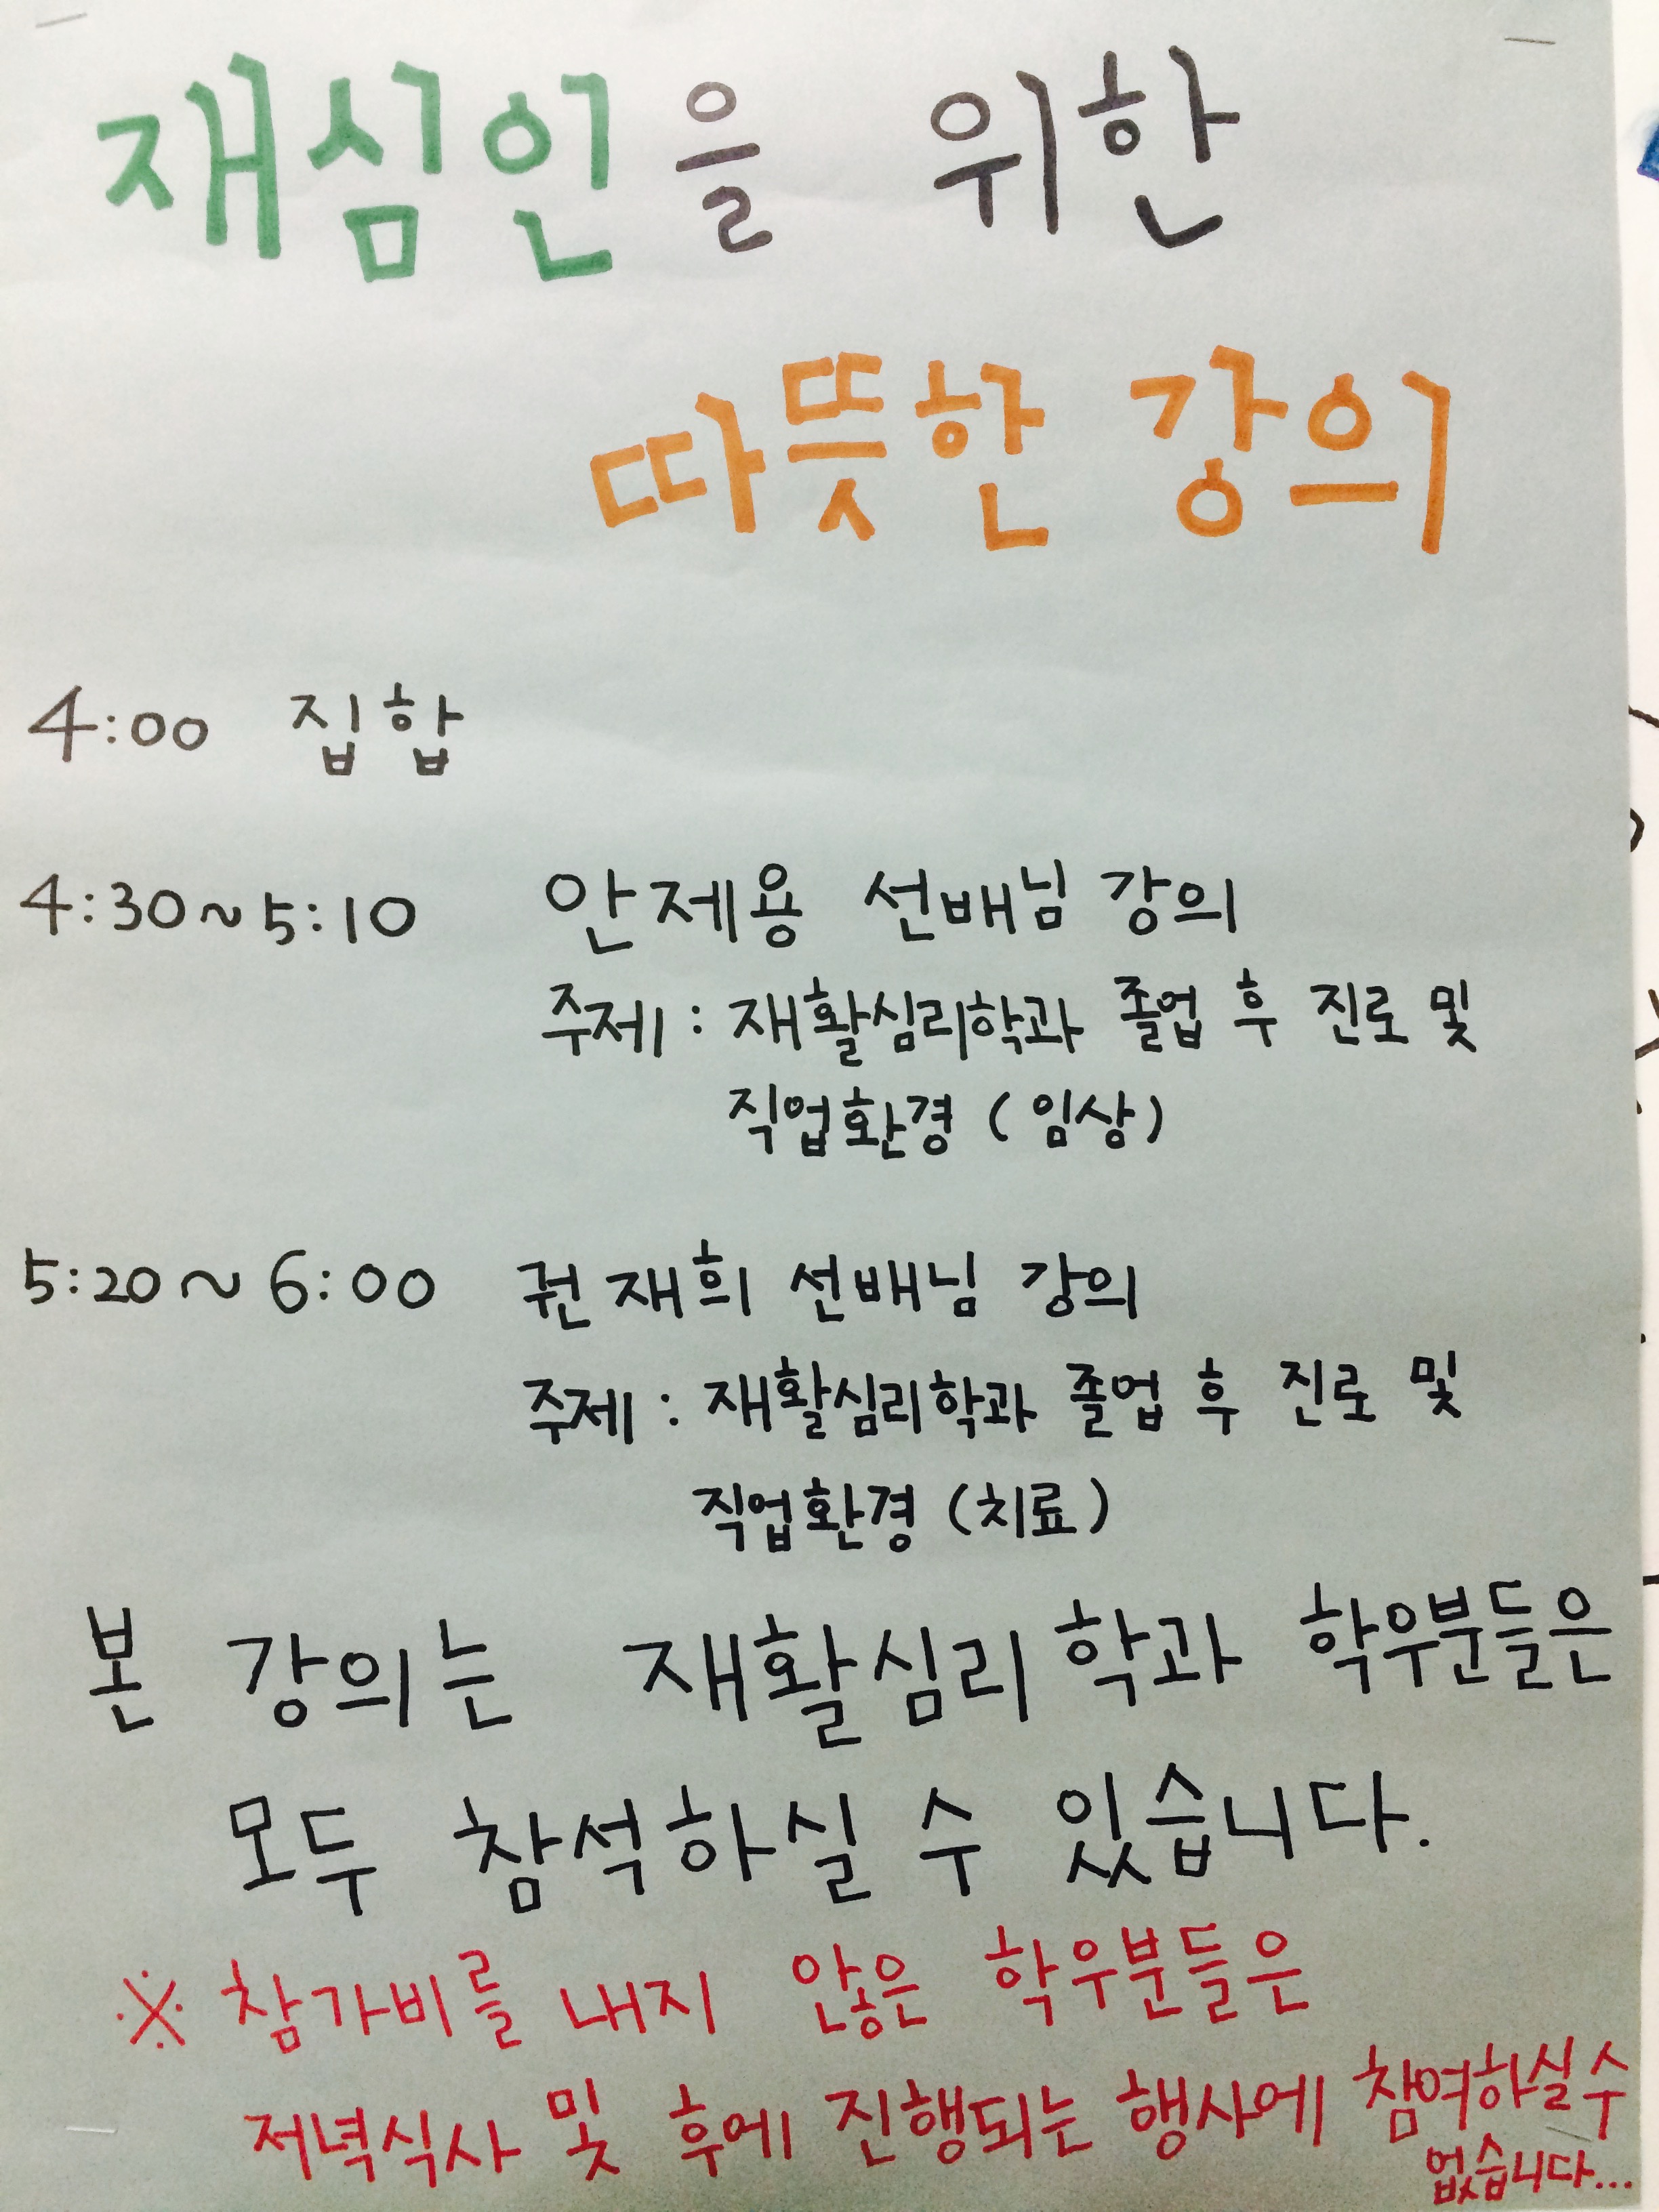 재심인을 위한
따뜻한 강의
4:00 집합
4:30~5:10 안제용 선배님 강의
주제 : 재활심리학과 졸업 후 진로 및
직업환경 (임상)
5:20~6:00 권재희 선배님 강의
주제 : 재활심리학과 졸업 후 진로 및
직업환경 (치료)
본 강의는 재활심리학과 학우분들은
모두 참석하실 수 있습니다.
※ 참가비를 내지 않은 학우분들은
저녁식사 및 후에 진행되는 행사에 참여하실 수
없습니다...